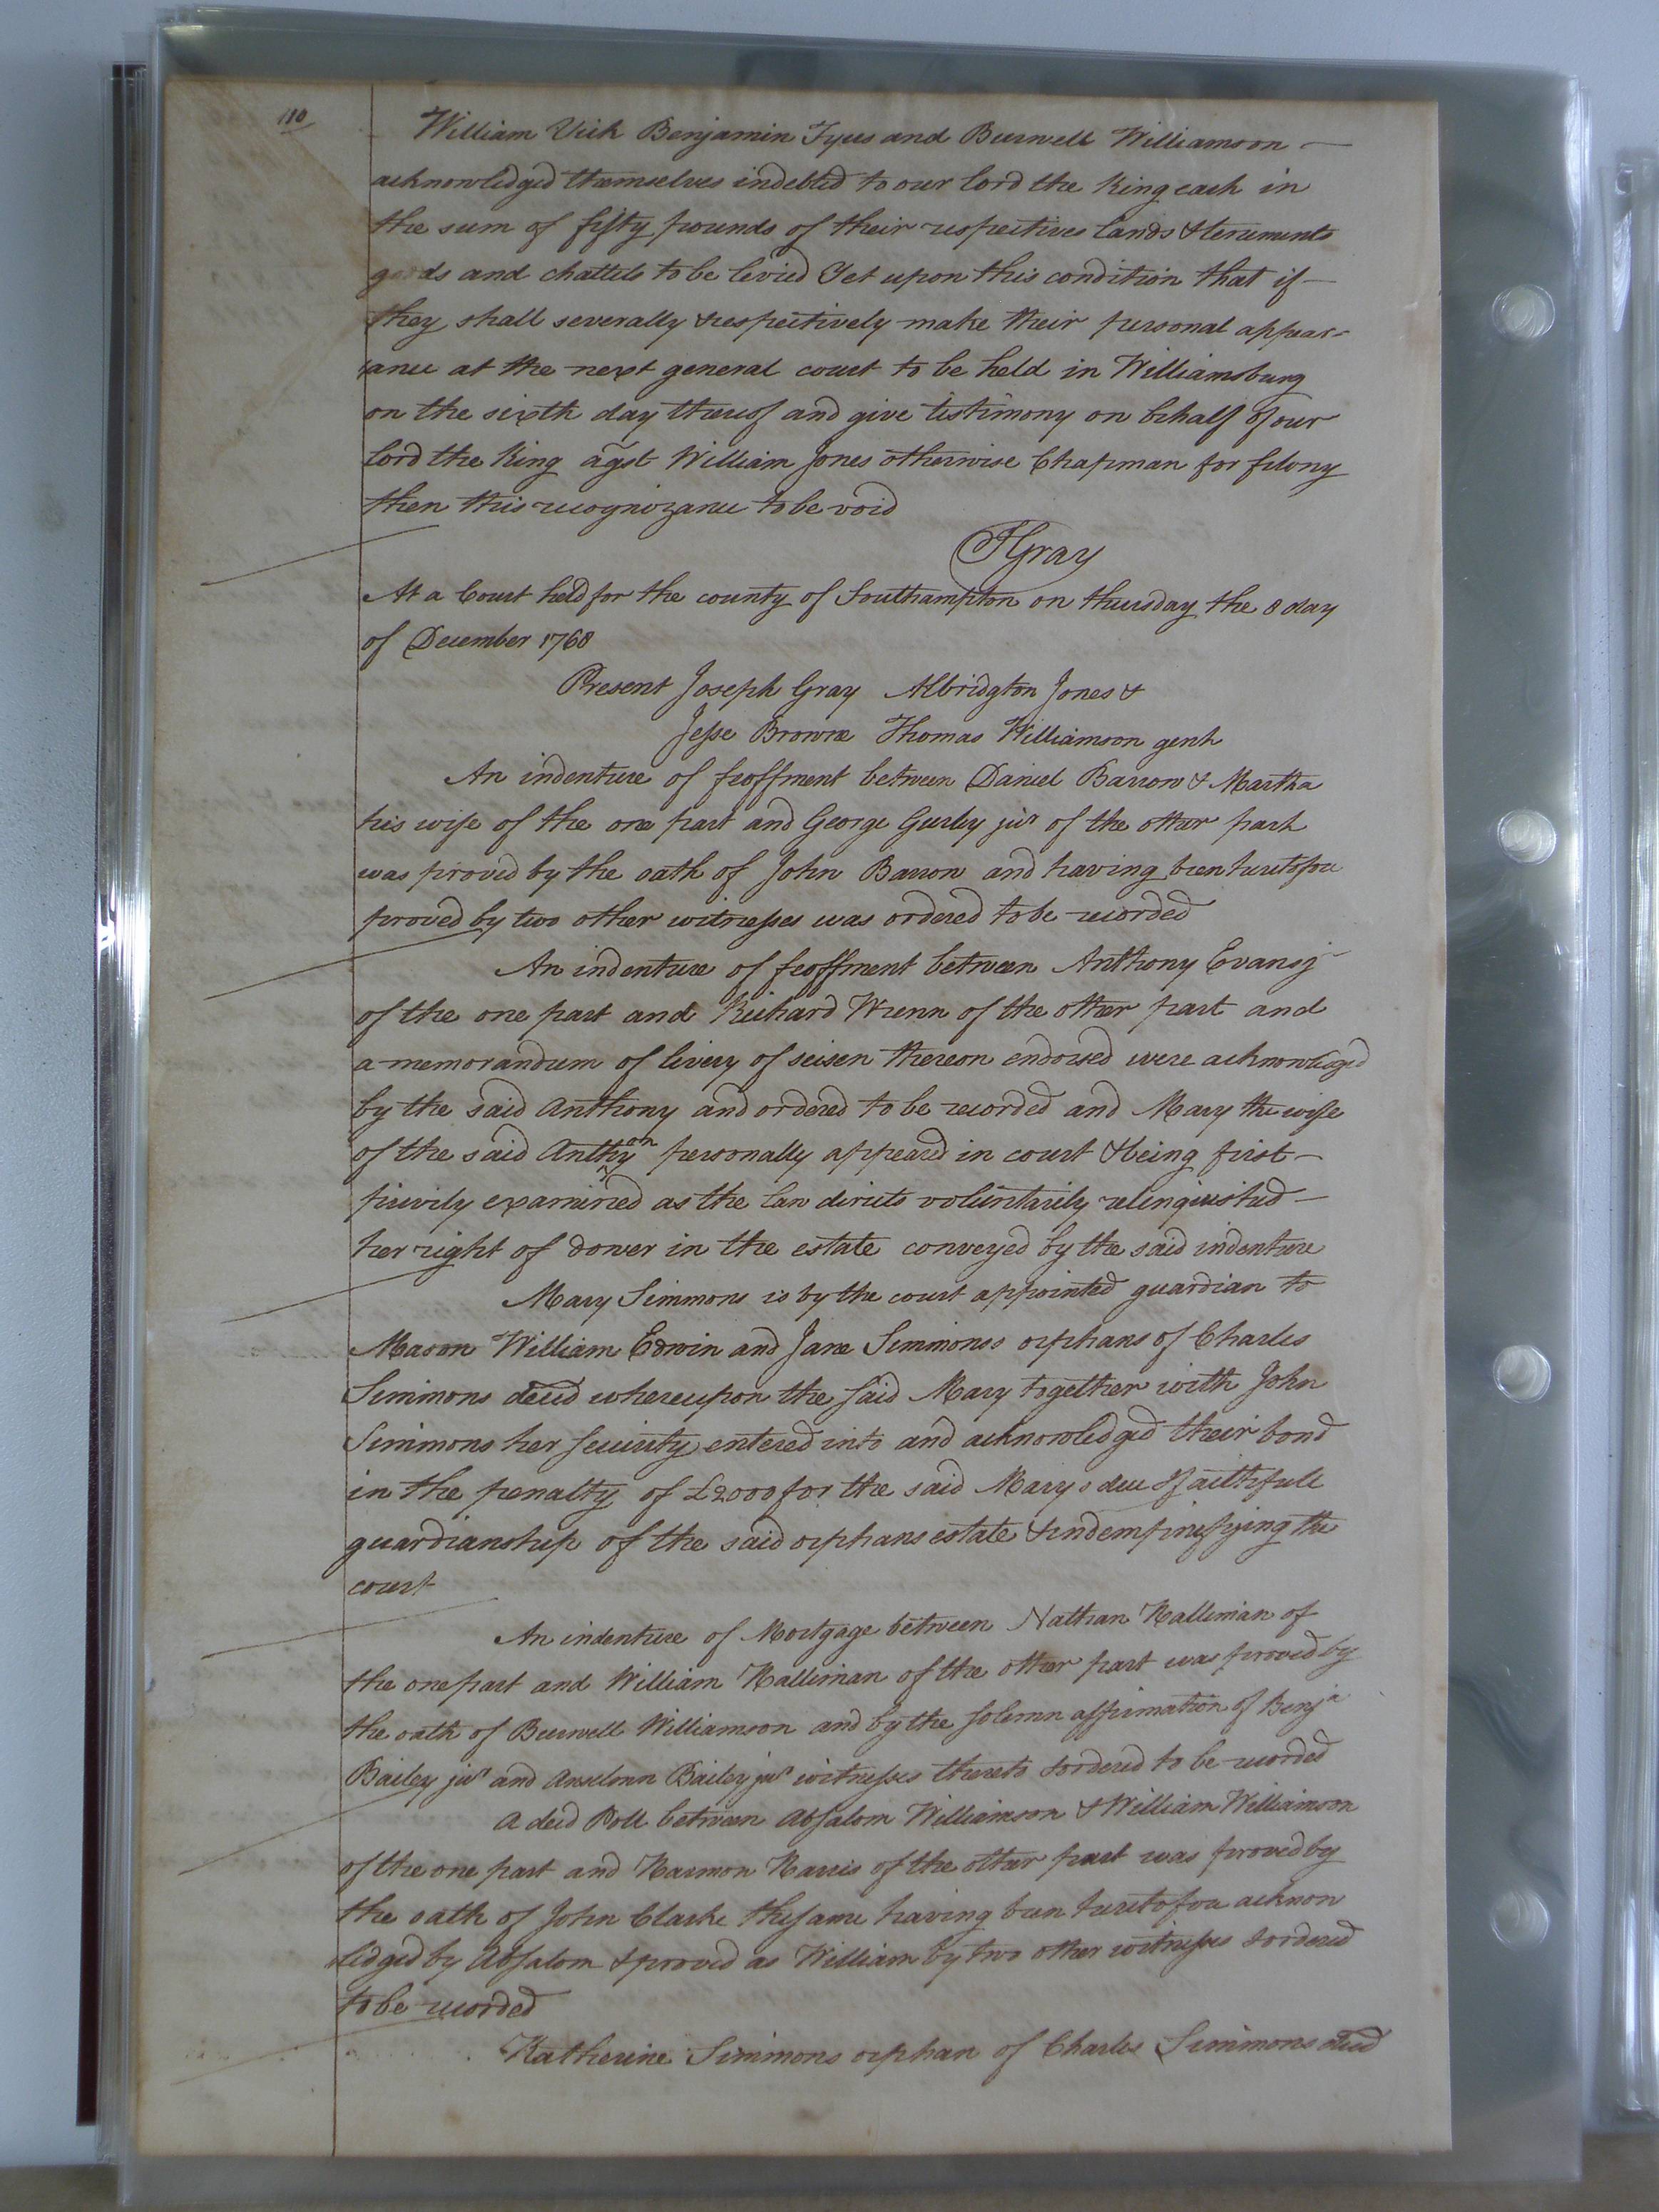 110
William Vick Benjamin Tyus and Burwell Williamson —
acknowledged themselves indebted to our lord the King each in
the sum of fifty pounds of their respectives lands & tenements
goods and chattels to be levied Yet upon this condition that if —
they shall severally & respectively make their personal appear=
ance at the next general court to be held in Williamsburg
on the sixth day thereof and give testimony on behalf of our
lord the King agst William Jones otherwise Chapman for felony
then this recognizance to be void
JGray
At a Court held for the county of Southampton on thursday the 8 day
of December 1768
Present Joseph Gray Albridgton Jones &
Jesse Browne Thomas Williamson gent
An indenture of feoffment between Daniel Barrow & Martha
his wife of the one part and George Gurley jur of the other part
was proved by the oath of John Barrow and having been heretofore
proved by two other witnesses was ordered to be recorded
An indenture of feoffment between Anthony Evans
of the one part and Richard Wrenn of the other part and
a memorandum of livery of seisen thereon endorsed were acknowledged
by the said Anthony and ordered to be recorded and Mary the wife
of the said Anthony personally appeared in court & being first —
privily examined as the law directs voluntarily relinquished —
her right of dower in the estate conveyed by the said indenture
Mary Simmons is by the court appointed guardian to
Mason William Edwin and Jane Simmonss orphans of Charles
Simmons decd whereupon the said Mary together with John
Simmons her security entered into and acknowledged their bond
in the penalty of £2000 for the said Marys due & faithfull
guardianship of the said orphans estate & indempnifying the
court
An indenture of Mortgage between Nathan Halliman of
the one part and William Halliman of the other part was proved by
the oath of Burwell Williamson and by the solemn affirmation of Benja
Bailey jur and Anselmn Bailey jur witnesses thereto & ordered to be recorded
A deed Poll between Absalom Williamson & William Williamson
of the one part and Harmon Harris of the other part was proved by
the oath of John Clarke the same having been heretofore acknow
ledged by Absalom & proved as William by two other witnesses & ordered
to be recorded
Katherine Simmons orphan of Charles Simmons decd